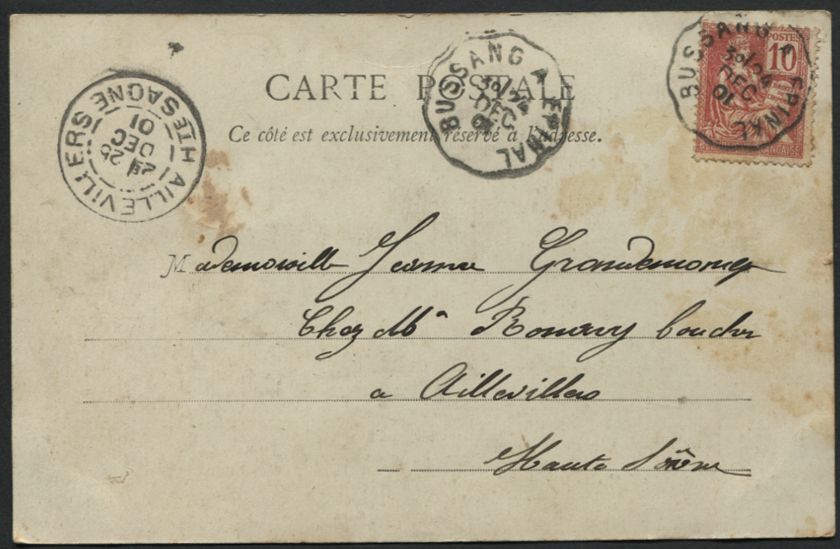 CARTE POSTALE
Ce côté est exclusivement réservé à l'adresse.
BUSSANG A EPINAL
3º/24
DEC
01
BUSSANG A EPINAL
3º/24
DEC
01
POSTES
10
AILLEVILLERS
HTE SAONE
25
DEC
01
Mademoiselle Jeanne
Chez Mr Romary boucher
à Aillevillers
Haute Saône